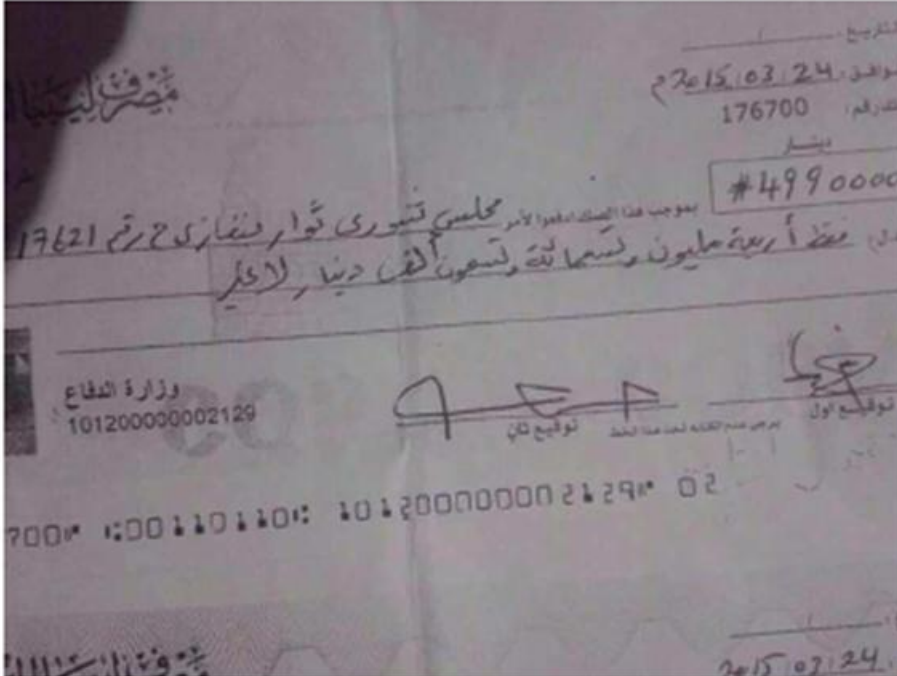 مصرف ليبيا
التاريخ / /
2015/03/24 م
176700
دينار
#4990000
بموجب هذا الصك ادفعوا لأمر مجلس شورى ثوار بنغازي ح رقم 17621
فقط أربعة مليون وتسعمائة وتسعون ألف دينار لا غير
وزارة الدفاع
101200000002129
توقيع اول
يرجى عدم الكتابة تحت هذا الخط
توقيع ثان
700 001101101 101200000002129 02
2015/03/24